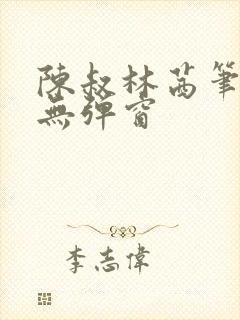 陳叔林茜筆
無彈窗
李志偉